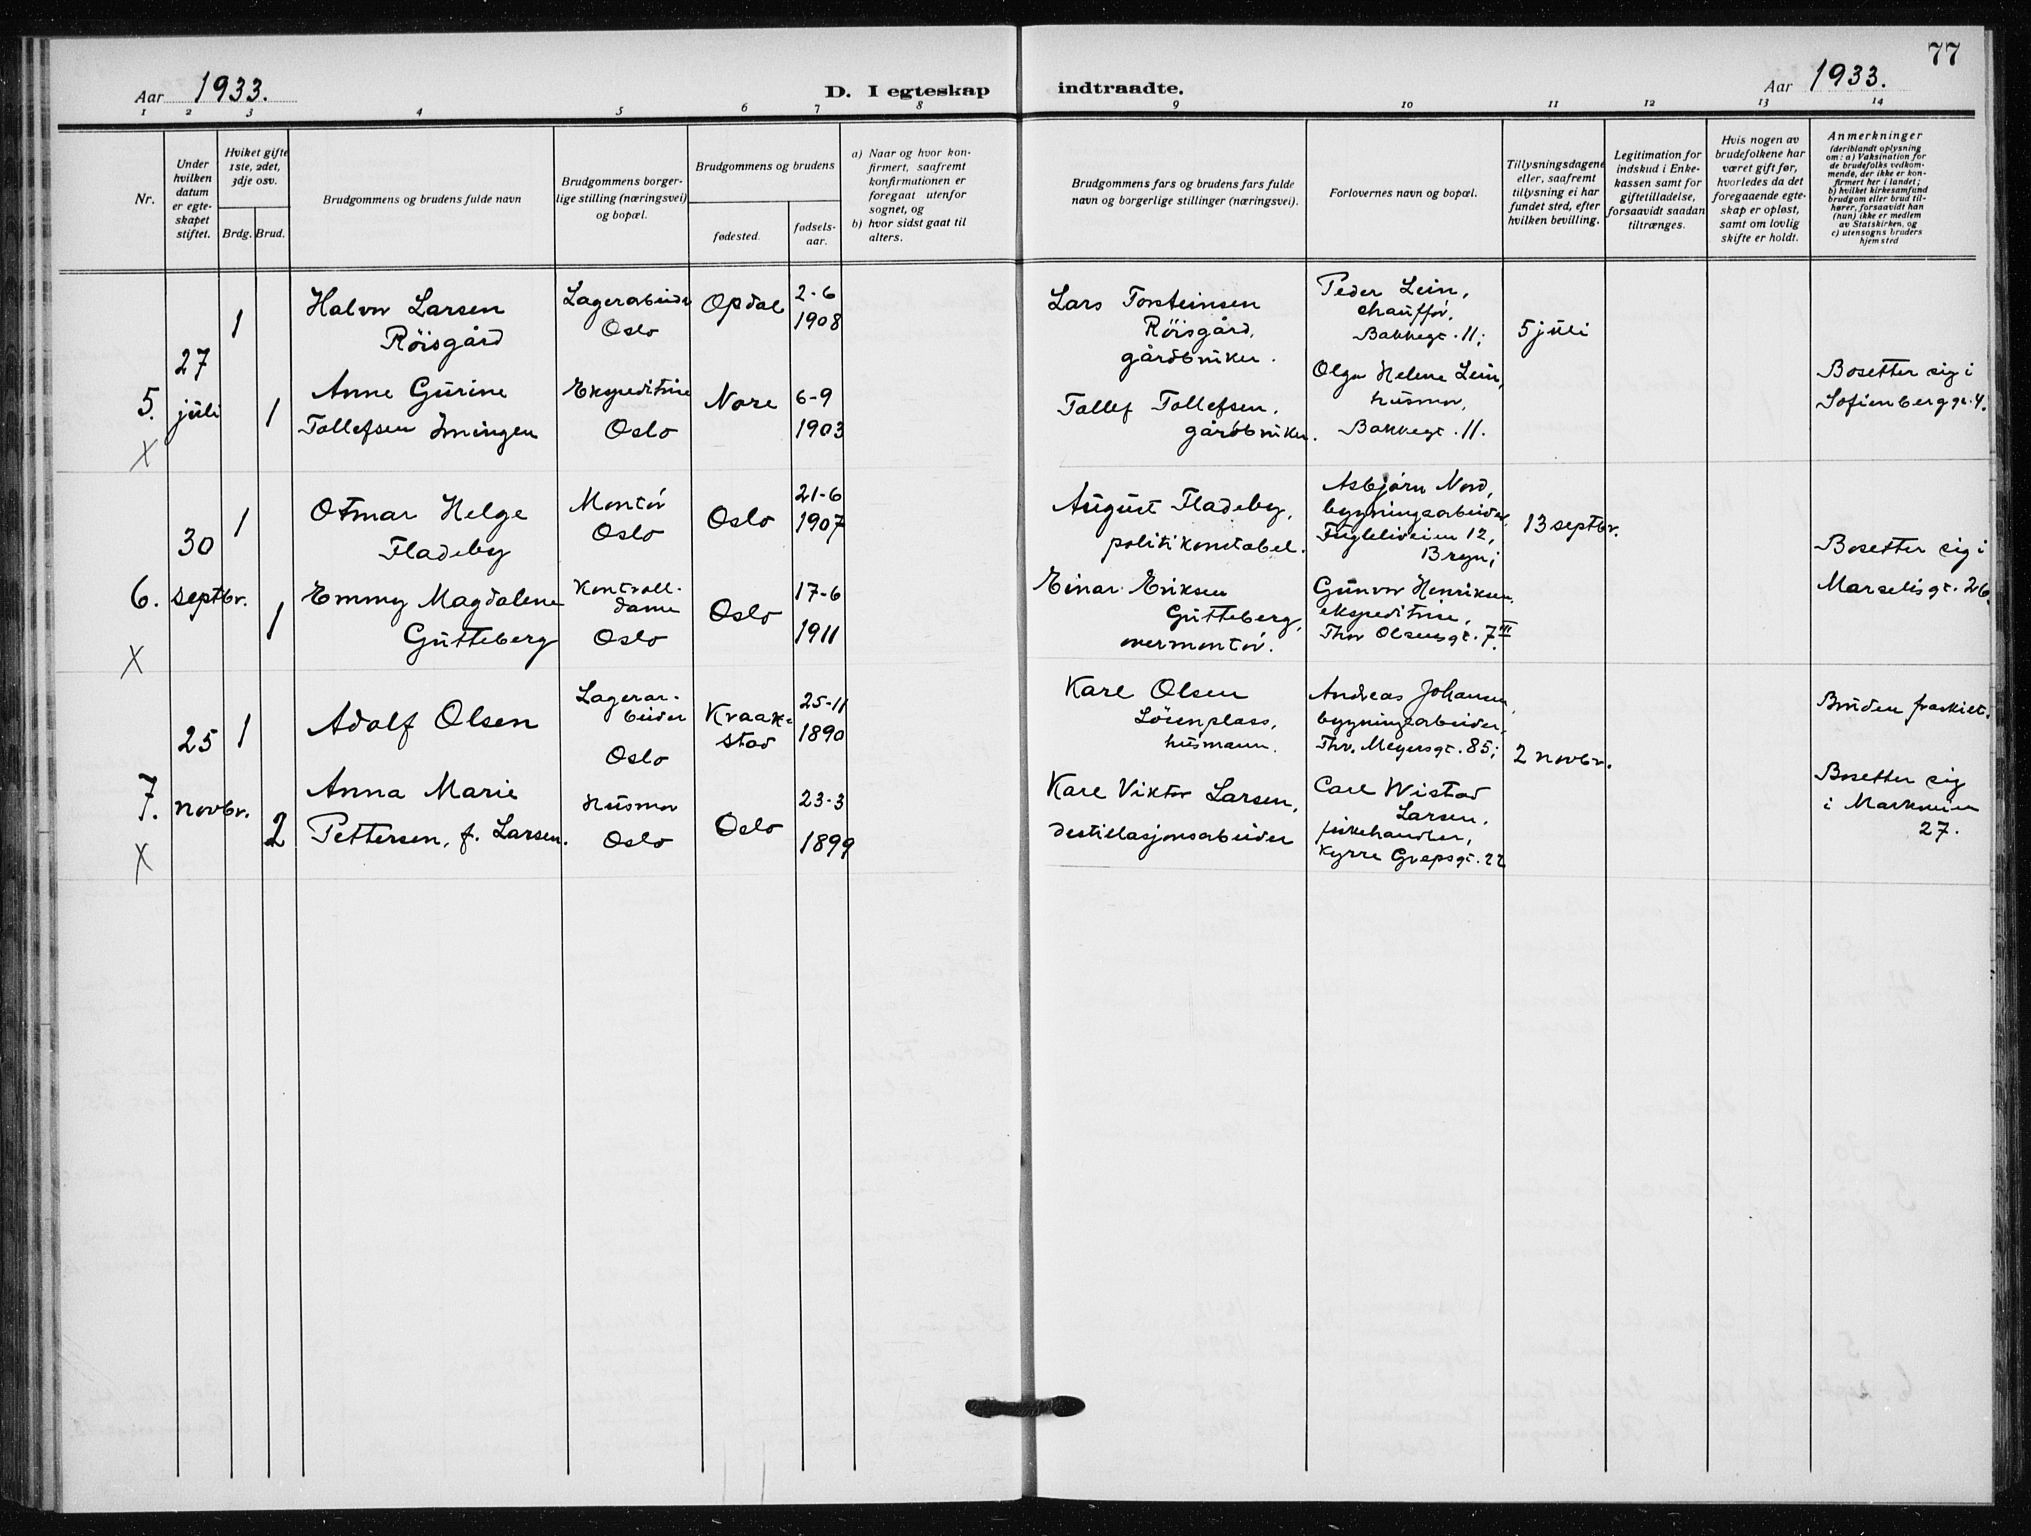 77
Aar 1933.
D. I egteskap indtraadte.
Aar 1933.
1 2 3 4 5 6 7 8 9 10 11 12 13 14
Nr.
Under
hvilken
datum
er egte-
skapet
stiftet.
Hviket gifte
1ste, 2det,
3dje osv.
Brdg. Brud.
Brudgommens og brudens fulde navn
Brudgommens borger-
lige stilling (næringsvei)
og bopæl.
Brudgommens og brudens
fødested.
fødsels-
aar.
a) Naar og hvor kon-
firmert, saafremt
konfirmationen er
foregaat utenfor
sognet, og
b) hvor sidst gaat til
alters.
Brudgommens fars og brudens fars fulde
navn og borgerlige stillinger (næringsvei).
Forlovernes navn og bopæl.
Tillysningsdagene
eller, saafremt
tillysning ei har
fundet sted, efter
hvilken bevilling.
Legitimation for
indskud i Enke-
kassen samt for
giftetilladelse,
forsaavidt saadan
tiltrænges.
Hvis nogen av
brudefolkene har
været gift før,
hvorledes da det
foregaaende egte-
skap er opløst,
samt om lovlig
skifte er holdt.
Anmerkninger
(deriblandt oplysning
om: a) Vaksination for
de brudefolks vedkom-
mende, der ikke er kon-
firmert her i landet;
b) hvilket kirkesamfund
brudgom eller brud til-
hører, forsaavidt han
(hun) ikke er medlem
av Statskirken, og
c) utensogns bruders
hjemsted
5.
X
27
juli
1
Halvor Larsen
Röisgård
Lagerarbeider
Oslo
Opdal
2-6
1908
Lars Torsteinsen
Röisgård,
gårdbruker.
Peder Lein,
chauffør,
Bakkegt. 11;
5 juli
1
Anne Gurine
Tollefsen Imingen
Ekspeditrise
Oslo
Nore
6-9
1903
Tollef Tollefsen,
gårdbruker.
Olga Helene Lein,
husmor,
Bakkegt. 11.
Bosetter sig i
Sofienberggt. 4.
6.
X
30
septbr.
1
Otmar Helge
Fladeby
Montør
Oslo
Oslo
21-6
1907
August Fladeby,
politikonstabel.
Asbjørn Nord,
bygningsarbeider,
Fugleliveien 12,
Bryn;
13 septbr.
1
Emmy Magdalene
Gutteberg
Kontroll-
dame
Oslo
Oslo
17-6
1911
Einar Eriksen
Gutteberg,
overmontør.
Gunvor Henriksen,
ekspeditrise,
Thor Olsensgt. 7 III.
Bosetter sig i
Marselisgt. 26.
7.
X
25
novbr.
1
Adolf Olsen
Lagerar-
beider
Oslo
Kraak-
stad
25-11
1890
Karl Olsen
Løienplass,
husmann.
Andreas Johansen,
bygningsarbeider,
Thv. Meyersgt. 85;
2 novbr.
Bruden fraskilt.
2
Anna Marie
Pettersen, f. Larsen.
Husmor
Oslo
Oslo
23-3
1899
Karl Viktor Larsen,
destillasjonsarbeider
Carl Wistad
Larsen,
fiskehandler,
Kyrre Grepsgt. 22
Bosetter sig
i Markveien
27.